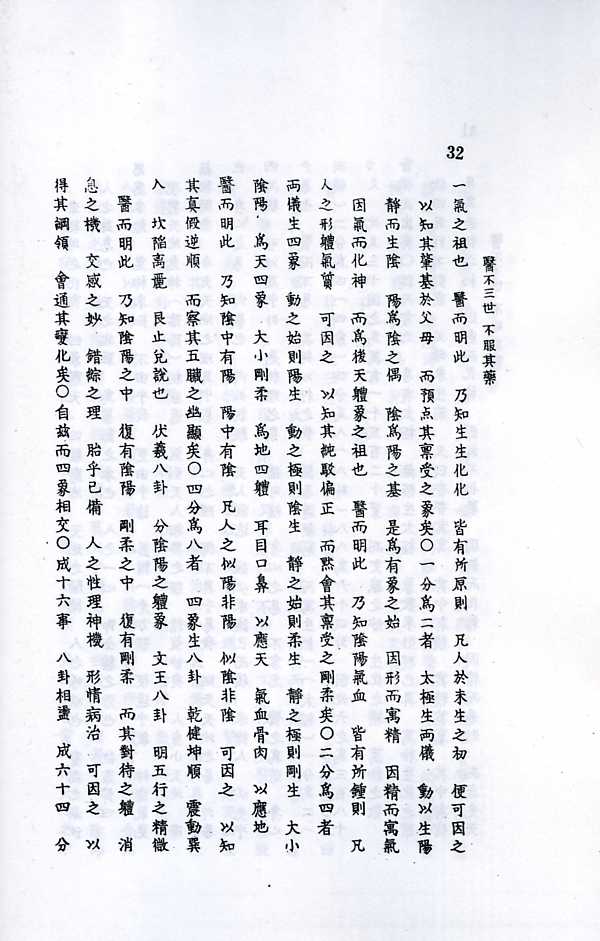 32
醫不三世 不服其藥
一氣之祖也 醫而明此 乃知生生化化 皆有所原則 凡人於未生之初 便可因之
以知其肇基於父母 而預点其禀受之象矣〇一分爲二者 太極生両儀 動以生陽
静而生陰 陽爲陰之偶 陰爲陽之基 是爲有象之始 因形而寓精 因精而寓氣
因氣而化神 而爲後天軆象之祖也 醫而明此 乃知陰陽氣血 皆有所鍾則 凡
人之形軆氣質 可因之 以知其純駁偏正 而黙會其禀受之剛柔矣〇二分爲四者
両儀生四象 動之始則陽生 動之極則陰生 静之始則柔生 静之極則剛生 大小
陰陽 爲天四象 大小剛柔 爲地四軆 耳目口鼻 以應天 氣血骨肉 以應地
醫而明此 乃知陰中有陽 陽中有陰 凡人之似陽非陽 似陰非陰 可因之 以知
其真假逆順 而察其五臟之幽顯矣〇四分爲八者 四象生八卦 乾健坤順 震動巽
入 坎陷离麗 艮止兌說也 伏羲八卦 分陰陽之軆象 文王八卦 明五行之精微
醫而明此 乃知陰陽之中 復有陰陽 剛柔之中 復有剛柔 而其對待之軆 消
息之機 交感之妙 錯綜之理 昭乎已備 人之性理神機 形情病治 可因之 以
得其綱領 會通其變化矣〇自玆而四象相交〇成十六事 八卦相盪 成六十四 分